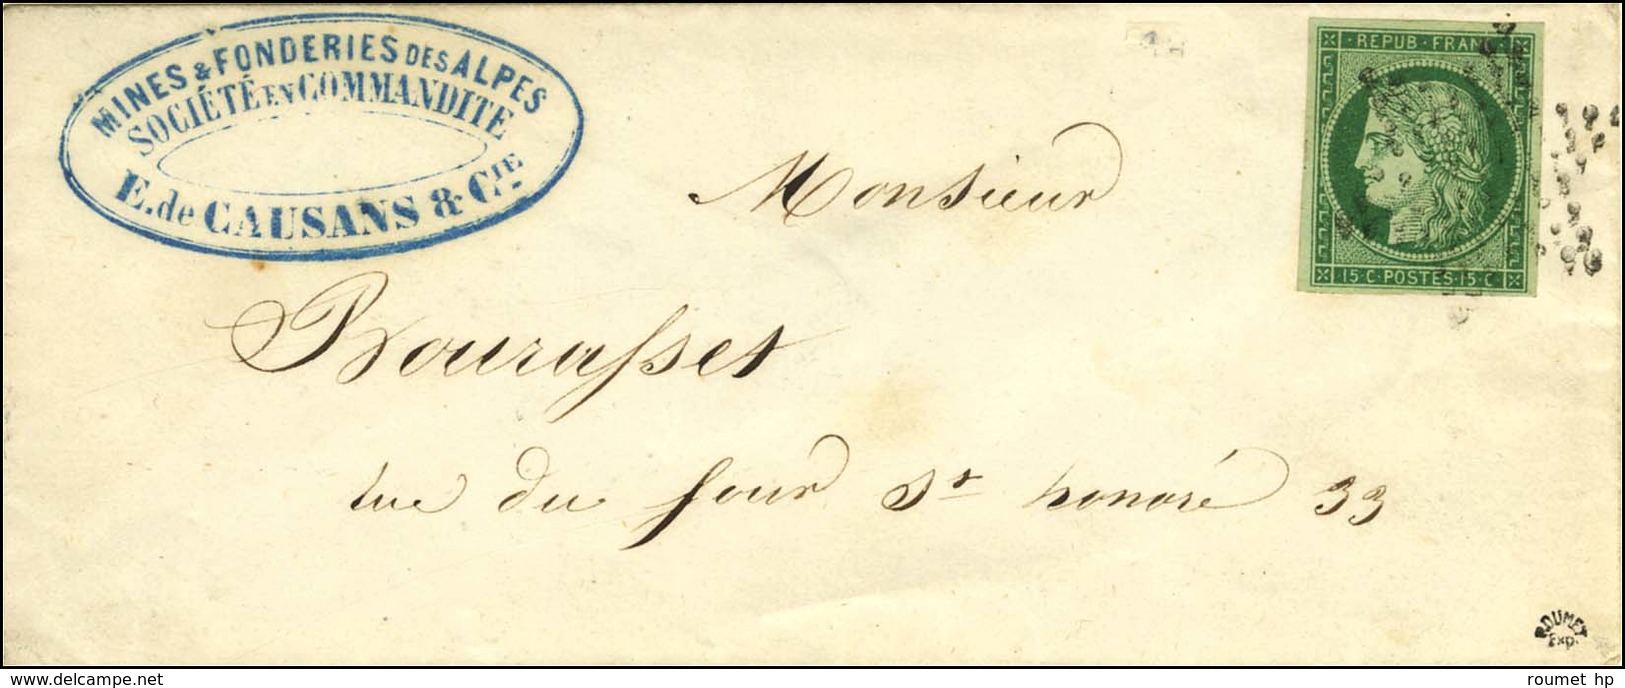 MINES & FONDERIES DES ALPES
SOCIÉTÉ EN COMMANDITE
E. de CAUSANS & CIE
REPUB·FRANC
15·C·POSTES·15·C
Monsieur
Bourasset
rue du four St honoré 33
ROUMET
Exp.
www.delcampe.net
roumet hp